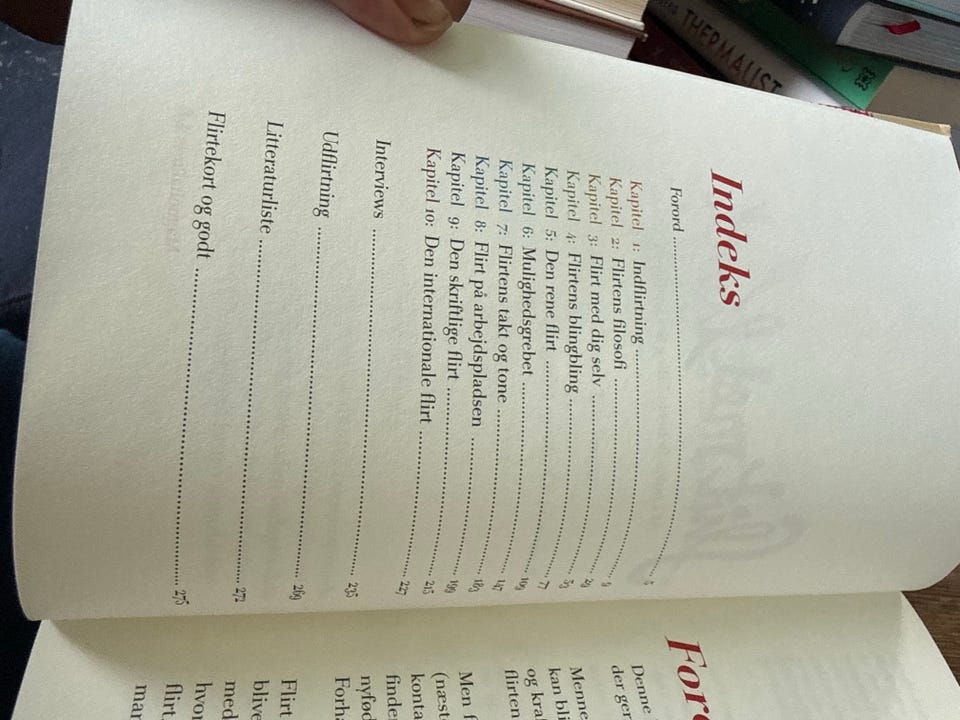 THERMALIST
Indeks
Forord ........ 5
Kapitel 1: Indflirtning ........ 9
Kapitel 2: Flirtens filosofi ........ 29
Kapitel 3: Flirt med dig selv ........ 53
Kapitel 4: Flirtens blingbling ........ 77
Kapitel 5: Den rene flirt ........ 109
Kapitel 6: Mulighedsgrebet ........ 147
Kapitel 7: Flirtens takt og tone ........ 183
Kapitel 8: Flirt på arbejdspladsen ........ 199
Kapitel 9: Den skriftlige flirt ........ 215
Kapitel 10: Den internationale flirt ........ 227
Interviews ........ 235
Udflirtning ........ 269
Litteraturliste ........ 272
Flirtekort og godt ........ 275
Denne
der ger
Menne
kan bli
og kral
flirten
Men f
(næst
konta
finde
nyfød
Forha
Flirt
blive
med
hvor
flirt.
mar